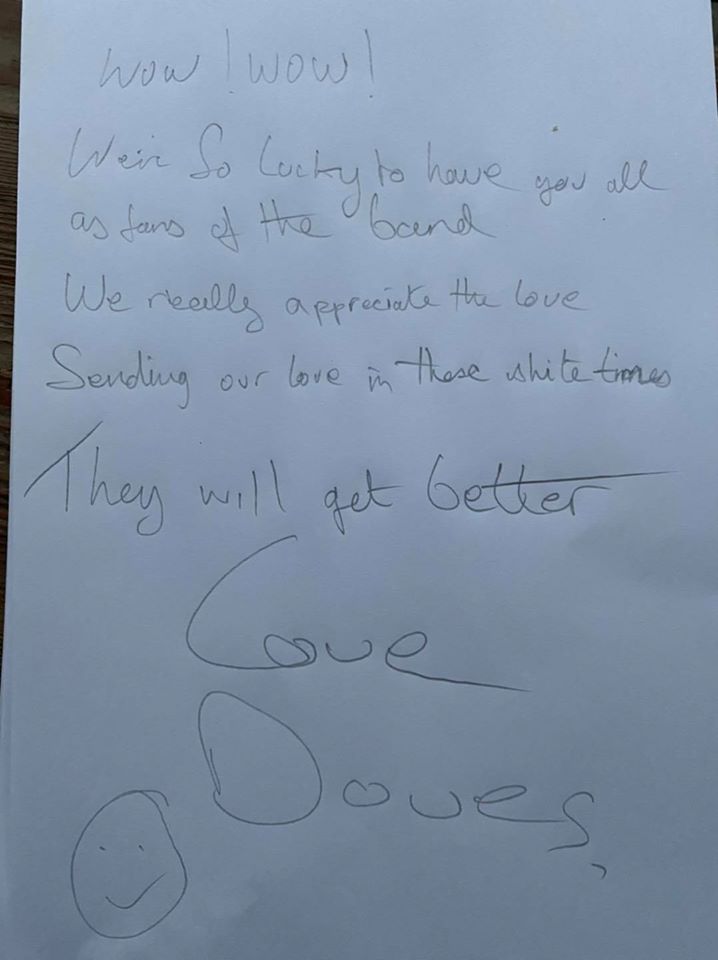 Wow! Wow!
We're So Lucky to have you all
as fans of the band
We really appreciate the love
Sending our love in these shite times
They will get better
Love
Doves,